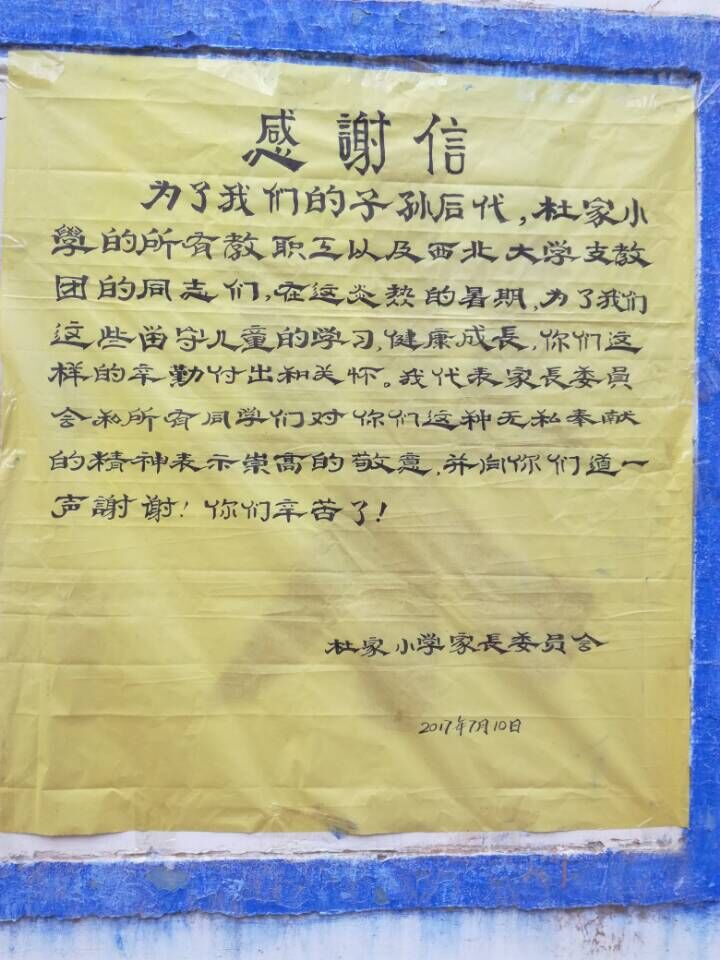 感謝信
为了我们的子孙后代，杜家小
學的所有教职工以及西北大学支教
团的同志们，在这炎热的暑期，为了我们
这些留守儿童的学习，健康成長，你们这
样的辛勤付出和关怀。我代表家長委員
会和所有同学们对你们这种无私奉献
的精神表示崇高的敬意，并向你们道一
声謝谢！你们辛苦了！
杜家小学家長委员会
2017年7月10日